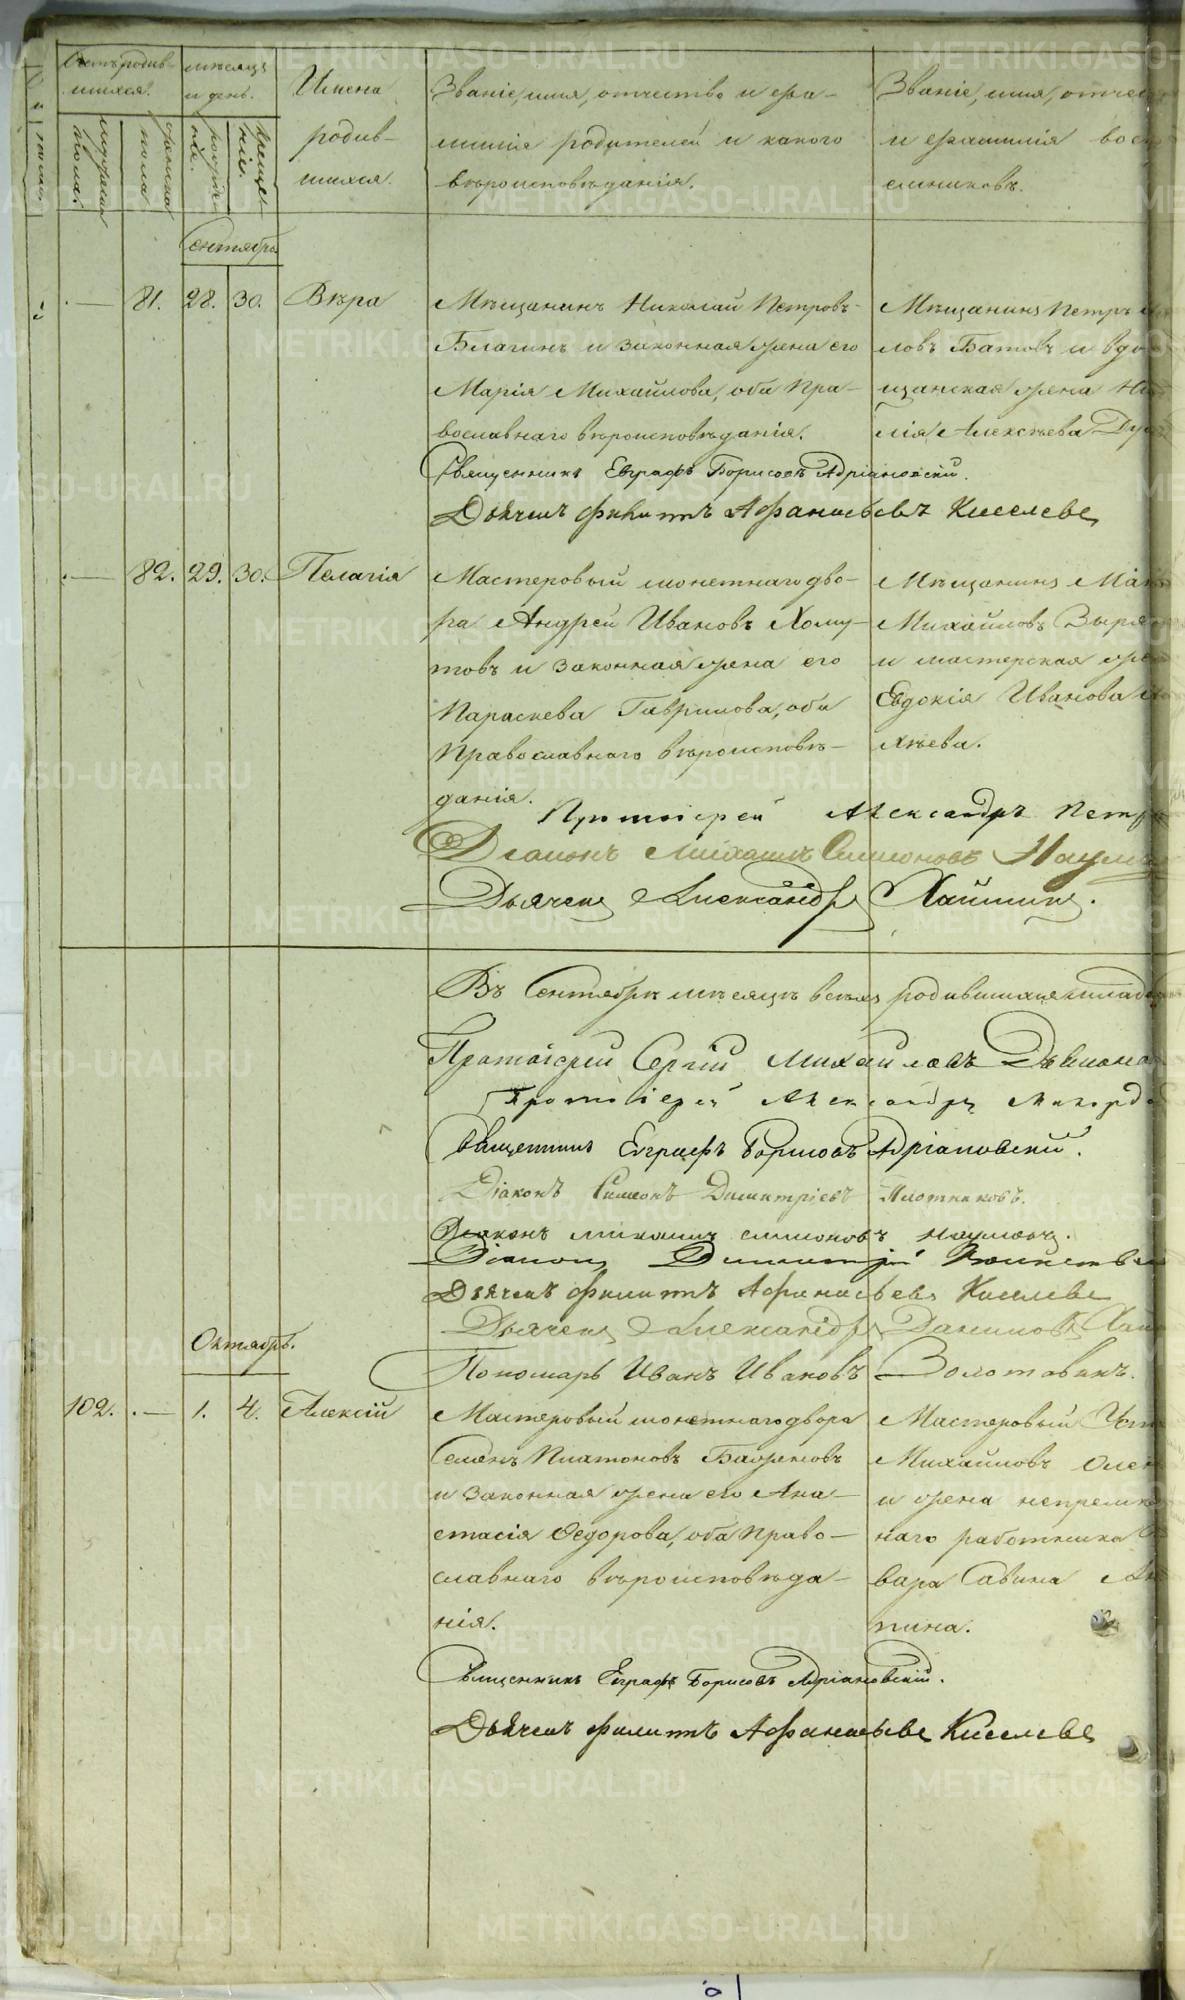 Счетъ родив-
шихся.
мужеска
пола
женска
пола
Мѣсяцъ
и день.
рожде-
нія.
креще-
нія.
Имена
родив-
шихся.
Званіе, имя, отчество и фа-
милія родителей и какого
вѣроисповѣданія.
Званіе, имя, отчес
и фамилія вос
емниковъ.
Сентябрь
— 81. 28. 30. Вѣра
Мѣщанинъ Николай Петровъ
Благинъ и законная жена его
Марія Михайлова, оба Пра-
вославнаго вѣроисповѣданія.
Мѣщанинъ Петръ
ловъ Батовъ и вдо
щанская жена
лія Алексѣева
Священникъ Евграфъ Борисовъ Адріановскій.
Дьячекъ Филиппъ Афанасьевъ Киселевъ
— 82. 29. 30. Пелагія
Мастеровый монетнаго дво-
ра Андрей Ивановъ Хому-
товъ и законная жена его
Параскева Гаврилова, оба
Православнаго вѣроисповѣ-
данія.
Мѣщанинъ
Михайловъ
и мастерская жен
Евдокія Иванова
хѣева.
Протоіерей Александръ Петр
Діаконъ Михаилъ Симоновъ Наум
Дьячекъ Александръ Хайминъ.
Въ Сентябрѣ мѣсяцѣ всѣхъ родившихся млад
Протоіерей Сергій Михайловъ
Протоіерей Александръ
Священникъ Евграфъ Борисовъ Адріановскій.
Діаконъ Симеонъ Димитріевъ Плотниковъ.
Діаконъ Михаилъ Симоновъ Наумовъ.
Діаконъ Димитрій
Дьячекъ Филиппъ Афанасьевъ Киселевъ
Дьячекъ Александръ Даниловъ Хай
Пономарь Иванъ Ивановъ Золотавинъ.
Октябрь.
102. — 1. 4. Алексій
Мастеровый монетнаго двора
Семенъ Платоновъ Баженовъ
и законная жена его Ана-
стасія Федорова, оба Право-
славнаго вѣроисповѣда-
нія.
Мастеровый
Михайловъ
и жена непрем
наго работника
вара Савина
пина.
Священникъ Евграфъ Борисовъ Адріановскій.
Дьячекъ Филиппъ Афанасьевъ Киселевъ
METRIKI.GASO-URAL.RU